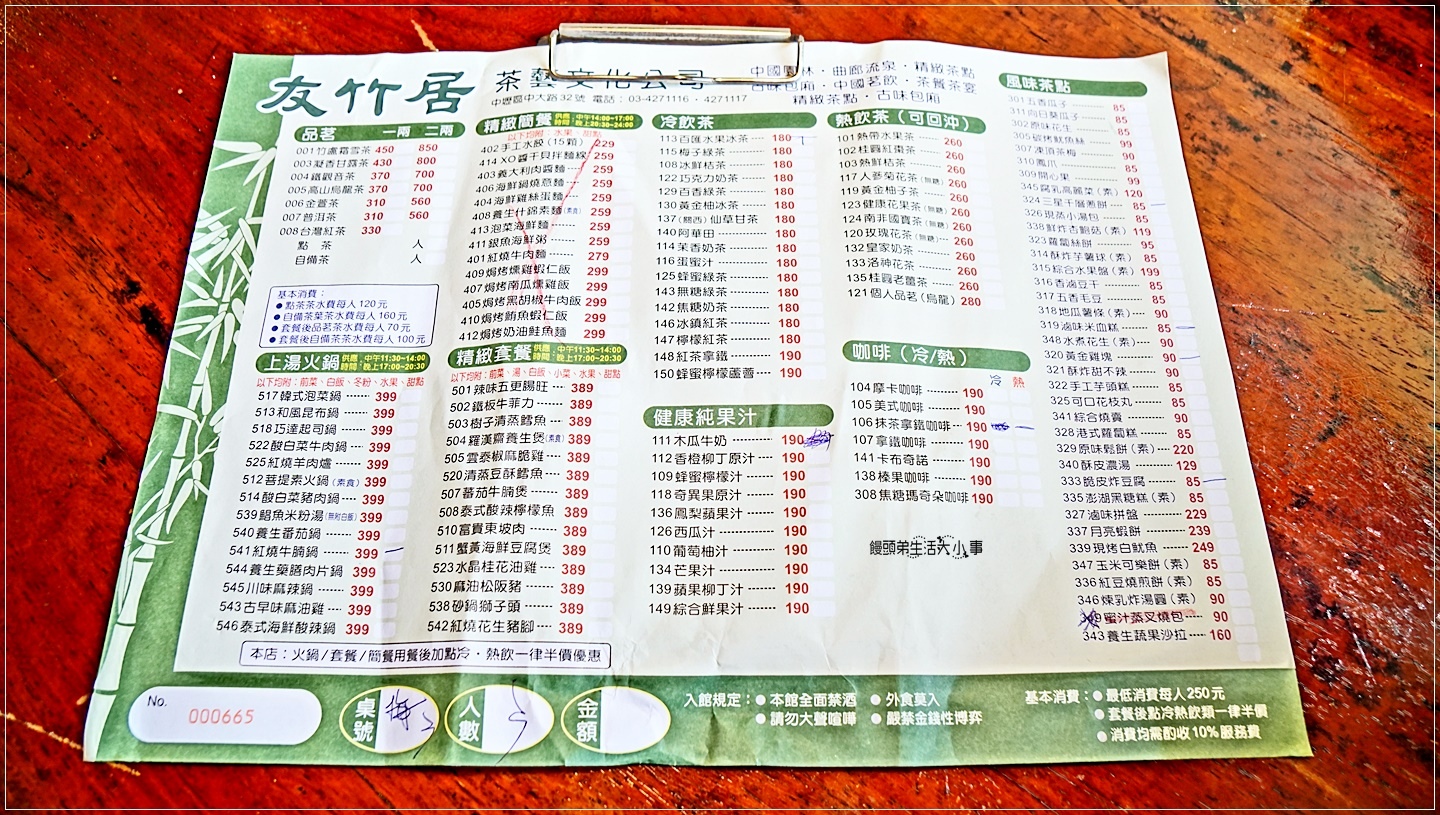 友竹居 茶藝文化公司
中壢區中大路32號 電話：03-4271116・4271117
中國園林・曲廊流泉・精緻茶點
古味包廂・中國茗飲・茶餐茶宴
精緻茶點・古味包廂
品茗 一兩 二兩
001竹盧霜雪茶 450 850
003凝香甘露茶 430 800
004鐵觀音茶 370 700
005高山烏龍茶 370 700
006金萱茶 310 560
007普洱茶 310 560
008台灣紅茶 330
點茶 人
自備茶 人
基本消費：
●點茶茶水費每人120元
●自備茶葉茶水費每人160元
●套餐後品茗茶水費每人70元
●套餐後自備茶茶水費每人100元
上湯火鍋 供應時間：中午11:30~14:00 晚上17:00~20:30
以下均附：前菜、白飯、冬粉、水果、甜點
517韓式泡菜鍋 399
513和風昆布鍋 399
518巧達起司鍋 399
522酸白菜牛肉鍋 399
525紅燒羊肉爐 399
512菩提素火鍋(素食) 399
514酸白菜豬肉鍋 399
539鯧魚米粉湯(無附白飯) 399
540養生番茄鍋 399
541紅燒牛腩鍋 399
544養生藥膳肉片鍋 399
545川味麻辣鍋 399
543古早味麻油雞 399
546泰式海鮮酸辣鍋 399
精緻簡餐 供應時間：中午14:00~17:00 晚上20:30~24:00
以下均附：水果、甜點
402手工水餃(15顆) 229
414XO醬干貝拌麵線 259
403義大利肉醬麵 259
406海鮮鍋燒意麵 259
404海鮮雞絲蛋麵 259
408養生什錦素麵(素食) 259
413泡菜海鮮麵 259
411銀魚海鮮粥 259
401紅燒牛肉麵 279
409焗烤燻雞蝦仁飯 299
407焗烤南瓜燻雞飯 299
405焗烤黑胡椒牛肉飯 299
410焗烤鮪魚蝦仁飯 299
412焗烤奶油鮭魚麵 299
精緻套餐 供應時間：中午11:30~14:00 晚上17:00~20:30
以下均附：前菜、湯、白飯、小菜、水果、甜點
501辣味五更腸旺 389
502鐵板牛菲力 389
503樹子清蒸鱈魚 389
504羅漢齋養生煲(素食) 389
505雲泰椒麻脆雞 389
520清蒸豆酥鱈魚 389
507蕃茄牛腩煲 389
508泰式酸辣檸檬魚 389
510富貴東坡肉 389
511蟹黃海鮮豆腐煲 389
523水晶桂花油雞 389
530麻油松阪豬 389
538砂鍋獅子頭 389
542紅燒花生豬腳 389
本店：火鍋/套餐/簡餐用餐後加點冷・熱飲一律半價優惠
冷飲茶
113百匯水果冰茶 180
115梅子綠茶 180
108冰鮮桔茶 180
122巧克力奶茶 180
129百香綠茶 180
130黃金柚冰茶 180
137(關西)仙草甘茶 180
140阿華田 180
114茉香奶茶 180
116蛋蜜汁 180
125蜂蜜綠茶 180
143無糖綠茶 180
142焦糖奶茶 180
146冰鎮紅茶 180
147檸檬紅茶 180
148紅茶拿鐵 190
150蜂蜜檸檬蘆薈 190
健康純果汁
111木瓜牛奶 190
112香橙柳丁原汁 190
109蜂蜜檸檬汁 190
118奇異果原汁 190
136鳳梨蘋果汁 190
126西瓜汁 190
110葡萄柚汁 190
134芒果汁 190
139蘋果柳丁汁 190
149綜合鮮果汁 190
熱飲茶（可回沖）
101熱帶水果茶 260
102桂圓紅棗茶 260
103熱鮮桔茶 260
117人蔘菊花茶(無糖) 260
119黃金柚子茶 260
123健康花果茶(無糖) 260
124南非國寶茶(無糖) 260
120玫瑰花茶(無糖) 260
132皇家奶茶 260
133洛神花茶 260
135桂圓老薑茶 260
121個人品茗(烏龍) 280
咖啡（冷/熱）
冷 熱
104摩卡咖啡 190
105美式咖啡 190
106抹茶拿鐵咖啡 190
107拿鐵咖啡 190
141卡布奇諾 190
138榛果咖啡 190
308焦糖瑪奇朵咖啡 190
饅頭弟生活大小事
風味茶點
301五香瓜子 85
311向日葵瓜子 85
302原味花生 85
305碳烤魷魚絲 99
307凍頂茶梅 90
310鳳爪 90
309開心果 99
345腐乳高麗菜(素) 120
324三星千層蔥餅 85
326現蒸小湯包 85
338鮮炸杏鮑菇(素) 119
323蘿蔔絲餅 95
314酥炸芋薯球(素) 85
315綜合水果盤(素) 199
316香滷豆干 85
317五香毛豆 85
318地瓜薯條(素) 90
319滷味米血糕 85
348水煮花生(素) 90
320黃金雞塊 90
321酥炸甜不辣 90
322手工芋頭糕 85
325可口花枝丸 85
341綜合燒賣 90
328港式蘿蔔糕 85
329原味鬆餅(素) 220
340酥皮濃湯 129
333脆皮炸豆腐 85
335澎湖黑糖糕(素) 85
327滷味拼盤 229
337月亮蝦餅 239
339現烤白魷魚 249
347玉米可樂餅(素) 85
336紅豆燒煎餅(素) 85
346煉乳炸湯圓(素) 90
蜜汁蒸叉燒包 90
343養生蔬果沙拉 160
No. 000665
桌號
人數
金額
入館規定：●本館全面禁酒 ●外食莫入
●請勿大聲喧嘩 ●嚴禁金錢性博弈
基本消費：●最低消費每人250元
●套餐後點冷熱飲類一律半價
●消費均需酌收10%服務費